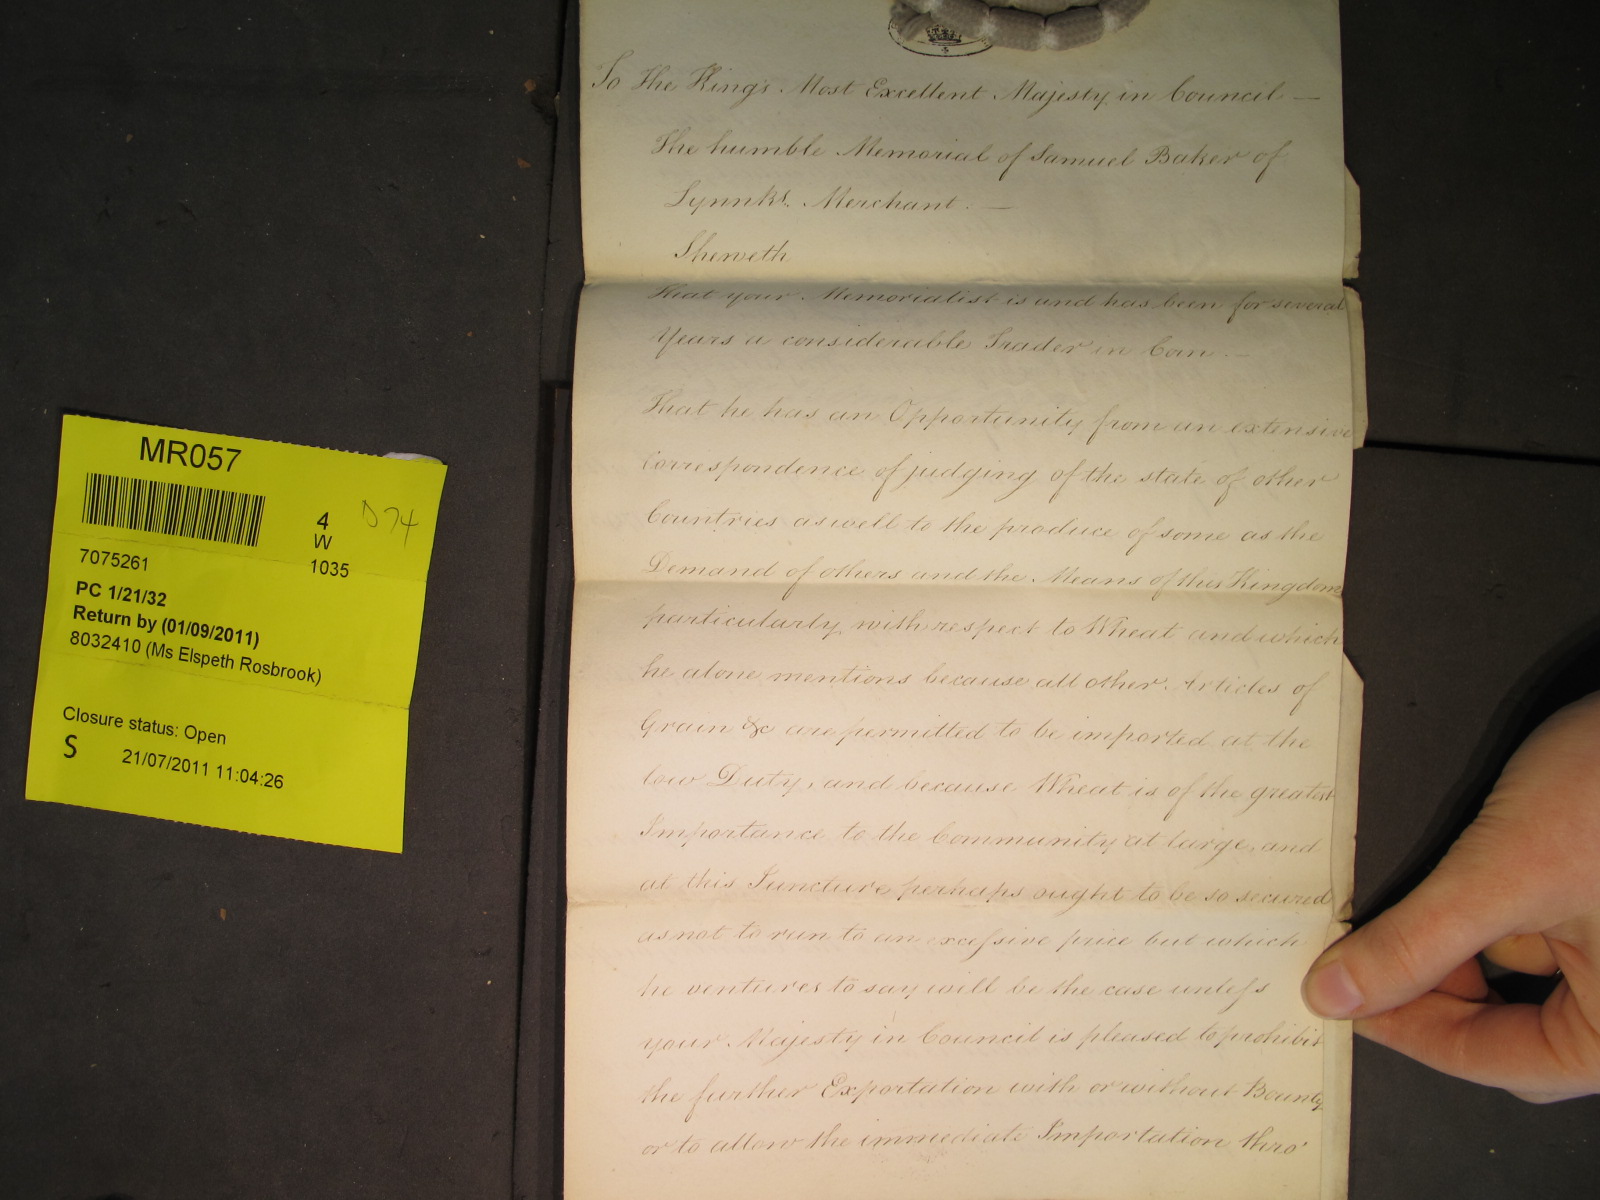 MR057
4
W
1035
D74
7075261
PC 1/21/32
Return by (01/09/2011)
8032410 (Ms Elspeth Rosbrook)
Closure status: Open
S
21/07/2011 11:04:26
To The King's Most Excellent Majesty in Council —
The humble Memorial of Samuel Baker of
Merchant. —
Sheweth
That your Memorialist is and has been for several
Years a considerable Trader in Corn. —
That he has an Opportunity from an extensive
Correspondence of judging of the state of other
Countries as well to the produce of some as the
Demand of others and the Means of this Kingdom
particularly with respect to Wheat and which
he alone mentions because all other Articles of
Grain &c are permitted to be imported at the
low Duty, and because Wheat is of the greatest
Importance to the Community at large, and
at this Juncture perhaps ought to be so secured
as not to run to an excessive price but which
he ventures to say will be the case unless
your Majesty in Council is pleased to prohibit
the further Exportation with or without Bounty
or to allow the immediate Importation thro'